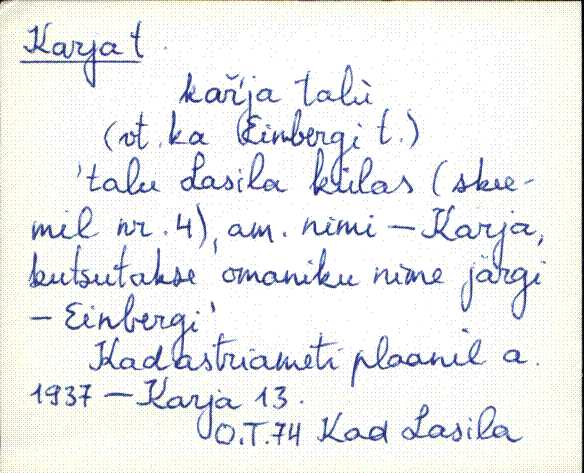 Karja t.
kar̆'ja talù
(vt. ka Einbergi t.)
'talu Lasila külas (skee-
mil nr. 4), am. nimi – Karja,
kutsutakse omaniku nime järgi
– Einbergi'
Kadastriameti plaanil a.
1937 – Karja 13.
O.T.74 Kad Lasila